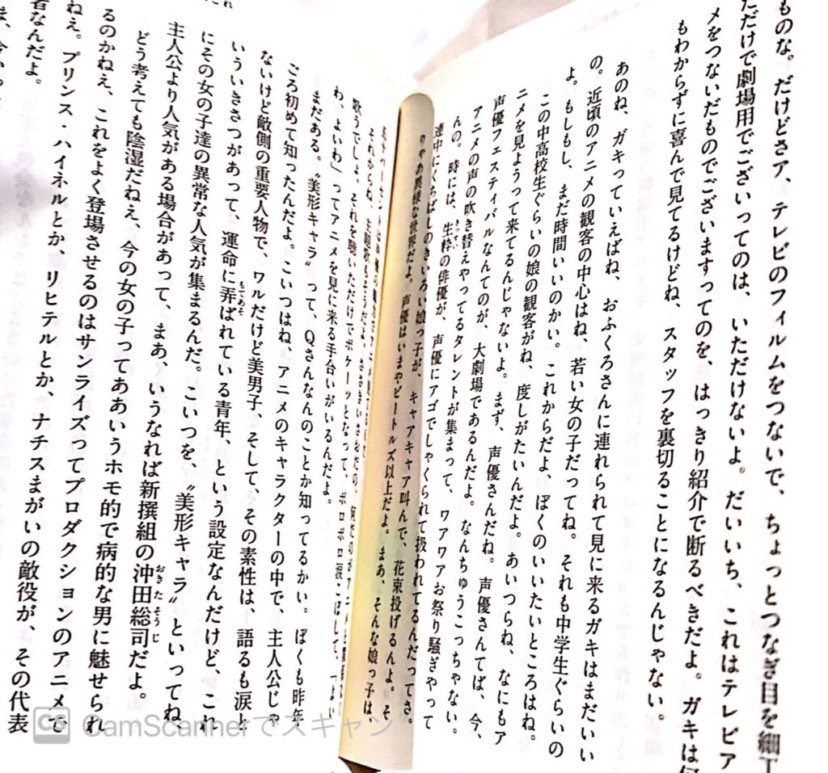 ものな。だけどさァ、テレビのフィルムをつないで、ちょっとつなぎ目を細工
ただけで劇場用でございってのは、いただけないよ。だいいち、これはテレビア
メをつないだものでございますってのを、はっきり紹介で断るべきだよ。ガキは何
もわからずに喜んで見てるけどね、スタッフを裏切ることになるんじゃない。
あのね、ガキっていえばね、おふくろさんに連れられて見に来るガキはまだいい
の。近頃のアニメの観客の中心はね、若い女の子だってね。それも中学生ぐらいの
よ。もしもし、まだ時間いいのかい。これからだよ、ぼくのいいたいところはね。
この中高校生ぐらいの娘の観客がね、度しがたいんだよ。あいつらね、なにもア
ニメを見ようって来てるんじゃないよ。まず、声優さんだね。声優さんてば、今、
声優フェスティバルなんてのが、大劇場であるんだよ。なんちゅうこっちゃない。
アニメの声の吹き替えやってるタレントが集まって、ワアワアお祭り騒ぎやって
んの。時には、生粋の俳優が、声優にアゴでしゃくられて扱われてるんだってさ。
連中にくちばしのきいろい娘っ子が、キャアキャア叫んで、花束投げるんよ。そ
りゃあ異様な世界だよ。声優はいまやビートルズ以上だよ。まあ、そんな娘っ子は、
それからね、主題歌
歌うでしょ。それを聴いただけでポケーッとなって、ポロポロ涙こぼして、「よい
わ、よいわ」ってアニメを見に来る手合いがいるんだよ。
まだある。〝美形キャラ〟って、Qさんなんのことか知ってるかい。ぼくも昨年
ごろ初めて知ったんだよ。こいつはね、アニメのキャラクターの中で、主人公じゃ
ないけど敵側の重要人物で、ワルだけど美男子、そして、その素性は、語るも涙と
いういきさつがあって、運命に弄ばれている青年、という設定なんだけど、これ
にその女の子達の異常な人気が集まるんだ。こいつを、〝美形キャラ〟といってね、
主人公より人気がある場合があって、まあ、いうなれば新撰組の沖田総司だよ。
どう考えても陰湿だねえ、今の女の子ってああいうホモ的で病的な男に魅せられ
るのかねえ、これをよく登場させるのはサンライズってプロダクションのアニメで
ねえ。プリンス・ハイネルとか、リヒテルとか、ナチスまがいの敵役が、その代表
者なんだよ。
CS CamScannerでスキャン